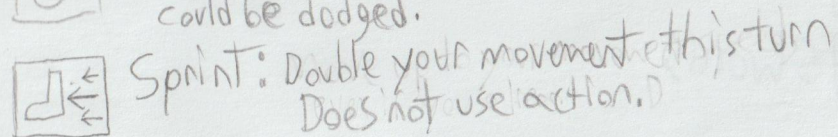 could be dodged.
Sprint: Double your movement this turn
Does not use action.